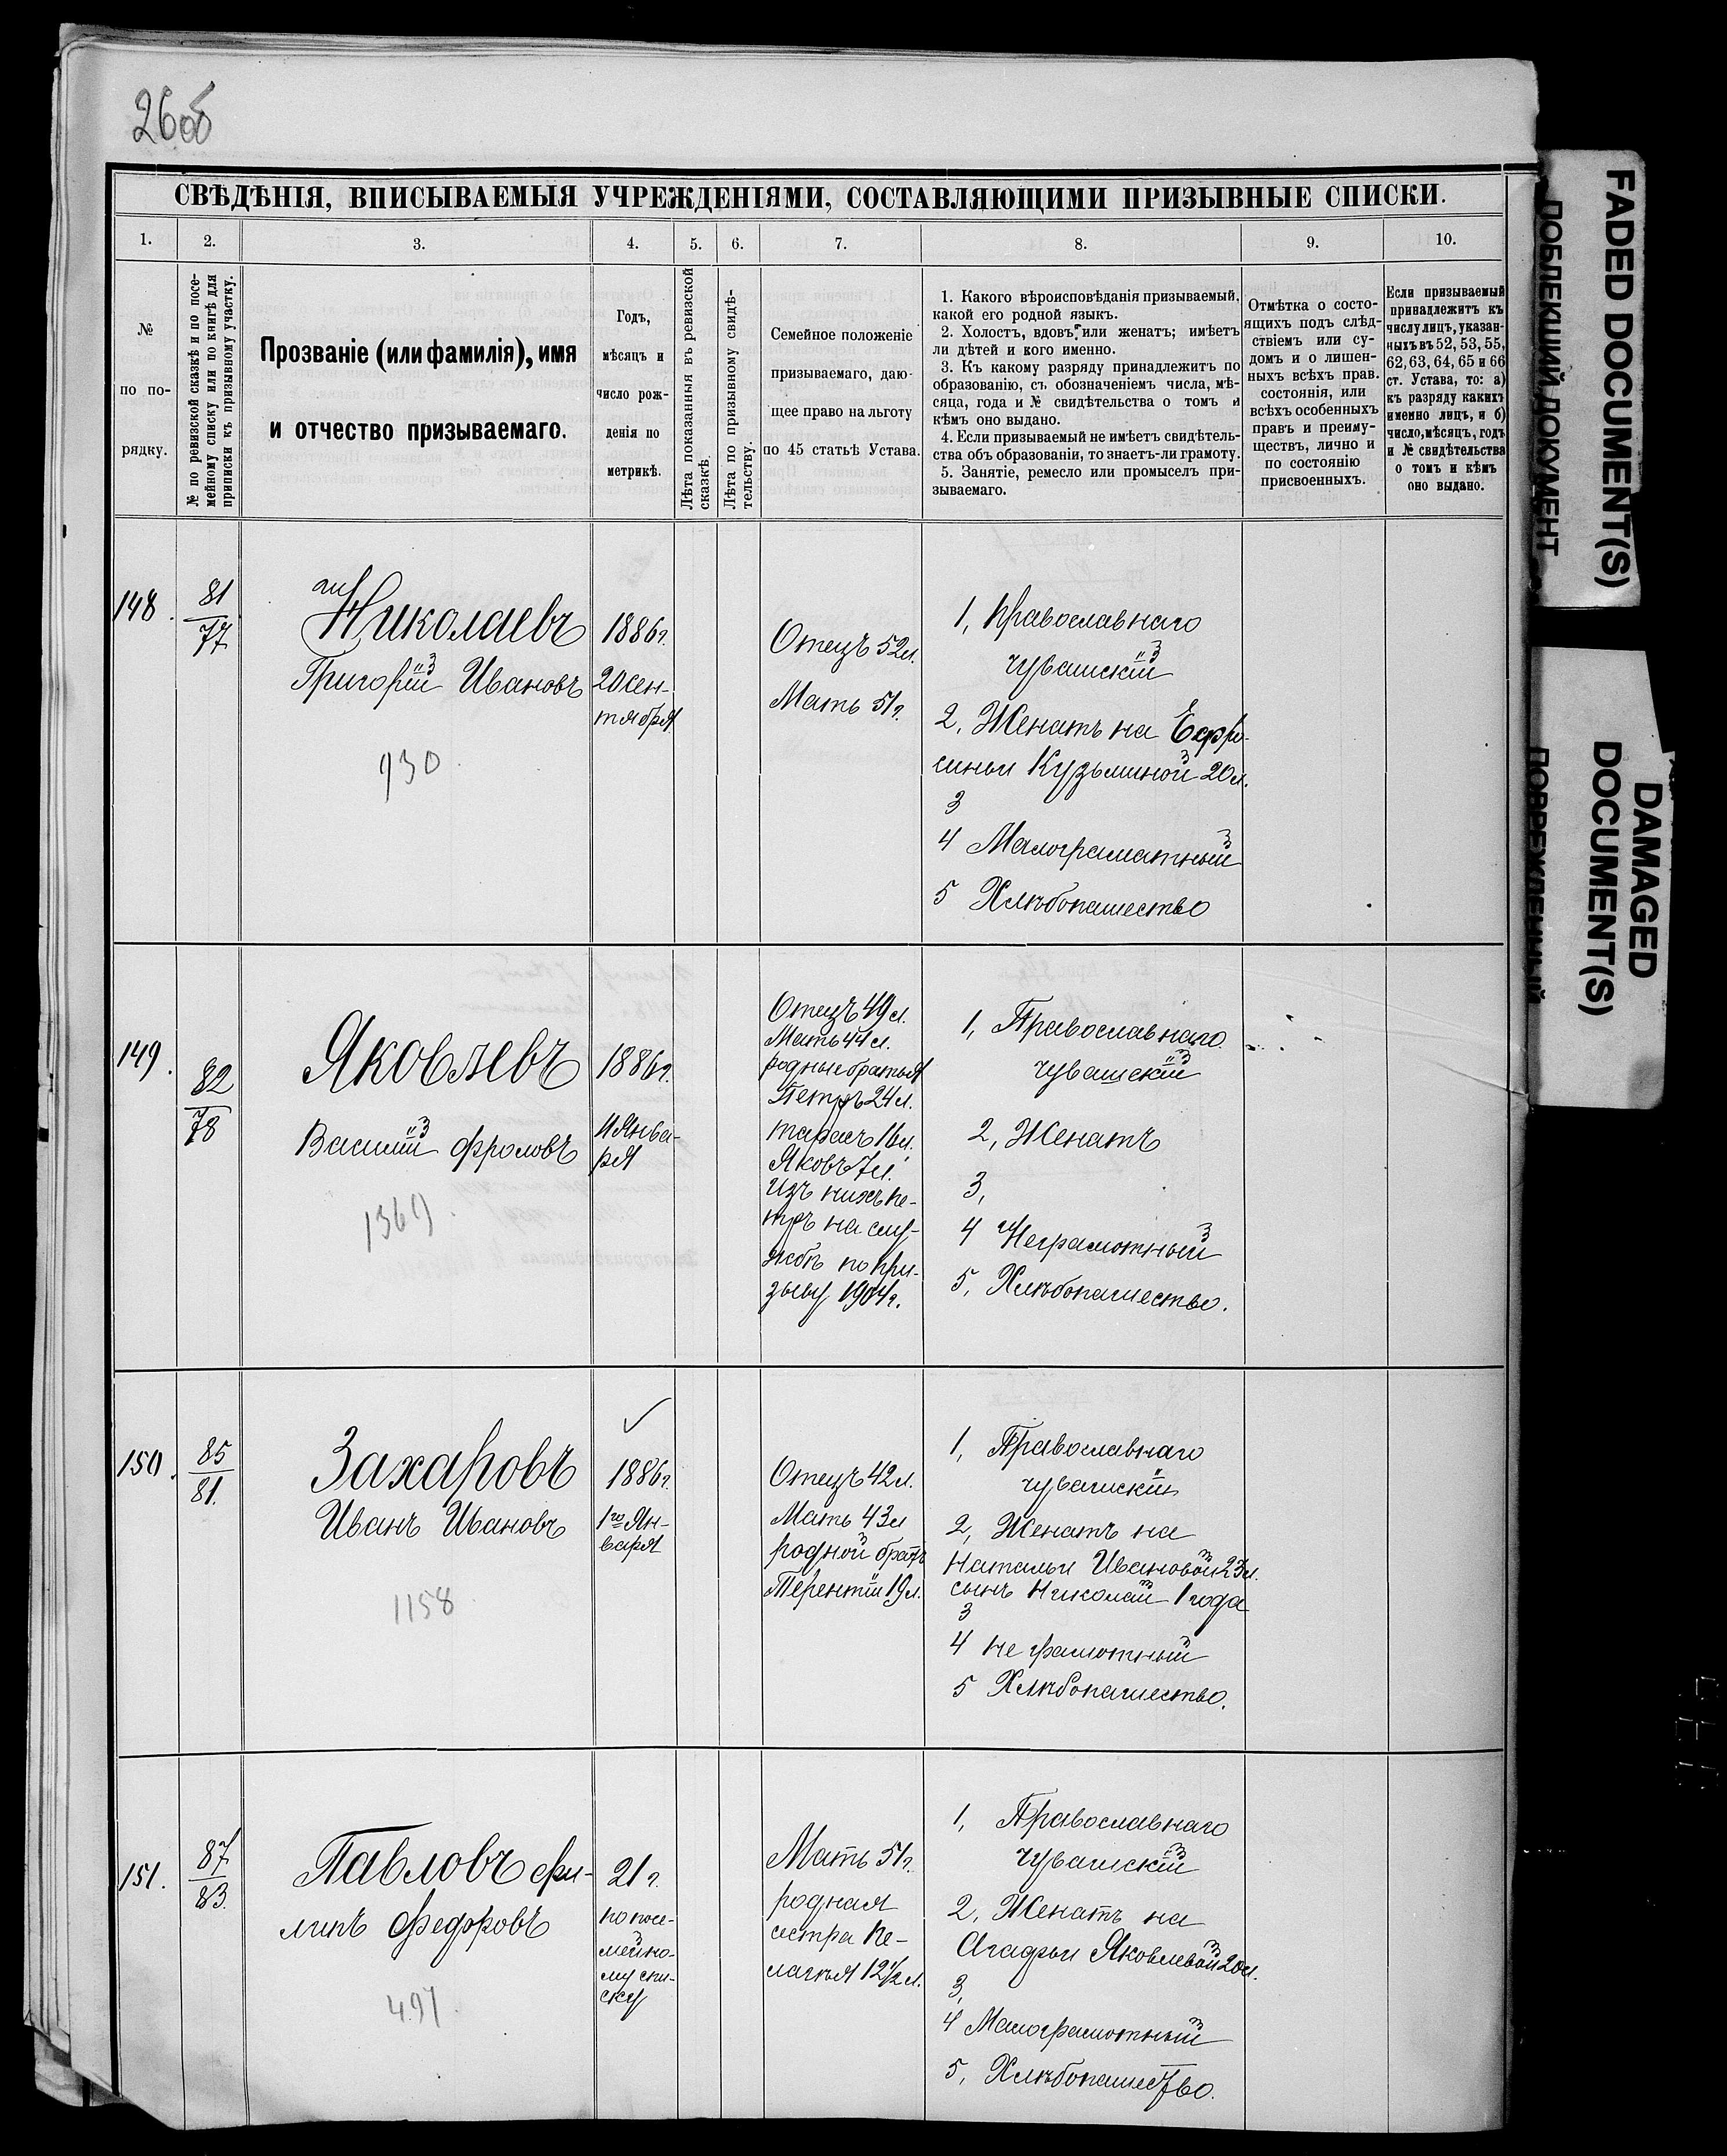 26об
СВѢДѢНІЯ, ВПИСЫВАЕМЫЯ УЧРЕЖДЕНІЯМИ, СОСТАВЛЯЮЩИМИ ПРИЗЫВНЫЕ СПИСКИ.
1. 2. 3. 4. 5. 6. 7. 8. 9. 10.
№
по по-
рядку.
№ по ревизской сказкѣ и по посе-
мейному списку или по книгѣ для
приписки къ призывному участку.
Прозваніе (или фамилія), имя
и отчество призываемаго.
Годъ,
мѣсяцъ и
число рож-
денія по
метрикѣ.
Лѣта показанныя въ ревизской
сказкѣ.
Лѣта по призывному свидѣ-
тельству.
Семейное положеніе
призываемаго, даю-
щее право на льготу
по 45 статьѣ Устава.
1. Какого вѣроисповѣданія призываемый,
какой его родной языкъ.
2. Холостъ, вдовъ, или женатъ; имѣетъ
ли дѣтей и кого именно.
3. Къ какому разряду принадлежитъ по
образованію, съ обозначеніемъ числа, мѣ-
сяца, года и № свидѣтельства о томъ и
кѣмъ оно выдано.
4. Если призываемый не имѣетъ свидѣтель-
ства объ образованіи, то знаетъ-ли грамоту.
5. Занятіе, ремесло или промыселъ при-
зываемаго.
Отмѣтка о состо-
ящихъ подъ слѣд-
ствіемъ или су-
домъ и о лишен-
ныхъ всѣхъ прав.
состоянія, или
всѣхъ особенныхъ
правъ и преиму-
ществъ, лично и
по состоянію
присвоенныхъ.
Если призываемый
принадлежитъ къ
числу лицъ, указан-
ныхъ въ 52, 53, 55,
62, 63, 64, 65 и 66
ст. Устава, то: а)
къ разряду какихъ
именно лицъ, и б)
число, мѣсяцъ, годъ
и № свидѣтельства
о томъ и кѣмъ
оно выдано.
148.
81
77
Николаевъ
Григорій Ивановъ
930
1886 г.
20 сен-
тября
Отецъ 52 л.
Мать 51 г.
1, Православнаго
чувашскій
2, Женатъ на Ефро-
синьи Кузьминой 20 л.
3
4 Малограматный
5 Хлѣбопашество
149.
82
78
Яковлевъ
Василій Фроловъ
1369
1886 г.
11 Янва-
ря
Отецъ 49 л.
Мать 44 л.
родные братья
Петръ 24 л.
Тарасъ 16 л.
Яковъ 7 л.
Изъ нихъ Пе-
тръ на слу-
жбѣ по при-
зыву 1904 г.
1, Православнаго
чувашскій
2, Женатъ
3,
4 Неграмотный
5, Хлѣбопашество.
150.
85
81.
Захаровъ
Иванъ Ивановъ
1158
1886 г.
1го Ян-
варя
Отецъ 42 л.
Мать 43 л
родной братъ
Терентій 19 л.
1, Православнаго
чувашскій
2, Женатъ на
Натальи Ивановой 23 л.
сынъ Николай 1 года
3
4 Не грамотный
5 Хлѣбопашество.
151.
87
83.
Павловъ Фи-
липъ Федоровъ
497
21 г.
по посе-
мейно-
му спи-
ску
Мать 51 г.
родная
сестра Пе-
лагья 12½ л.
1, Православнаго
чувашскій
2, Женатъ на
Агафьи Яковлевой 20 л.
3,
4 Малограмотный
5, Хлѣбопашество.
FADED DOCUMENT(S)
ПОБЛЕКШИЙ ДОКУМЕНТ
DAMAGED
DOCUMENT(S)